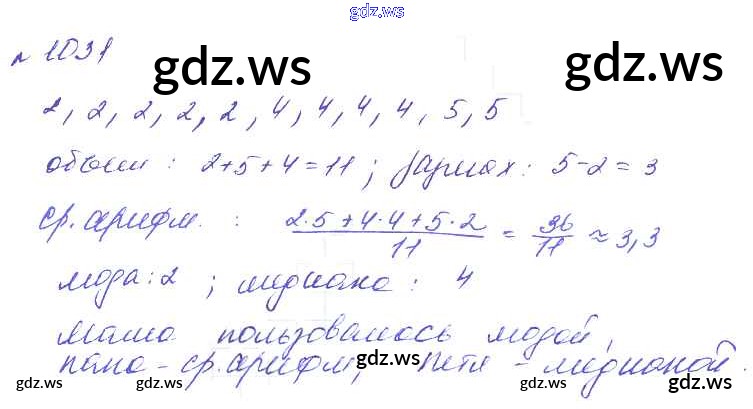 gdz.ws
№ 1031
gdz.ws gdz.ws
2, 2, 2, 2, 2, 4, 4, 4, 4, 5, 5
объем : 2+5+4=11 ; размах : 5-2=3
ср. арифм. : (2·5+4·4+5·2)/11 = 36/11 ≈ 3,3
мода : 2 ; медиана : 4
Маша пользовалась модой,
папа - ср. арифм, Петя - медианой.
gdz.ws gdz.ws gdz.ws gdz.ws gdz.ws